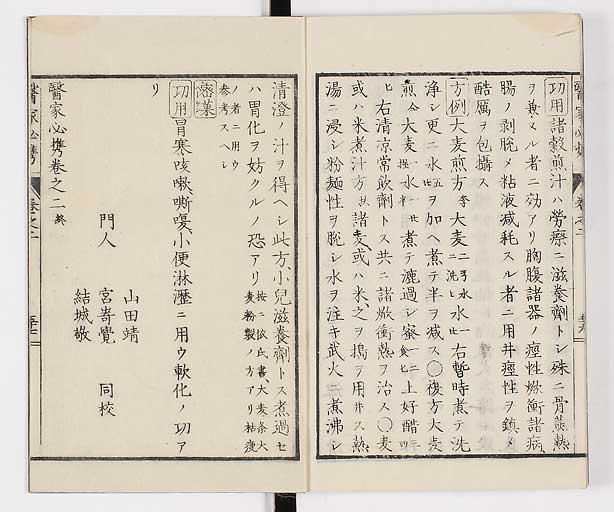 功用 諸穀煎汁ハ勞瘵ニ滋養劑トシ殊ニ骨蒸熱
ヲ兼ヌル者ニ効アリ胸腹諸器ノ痙性焮衝諸病
腸ノ剥脱メ粘液減耗スル者ニ用井痙性ヲ鎮メ
酷厲ヲ包攝ス
方例 大麥煎方 大麥 水 右暫時煮テ洗
浄シ更ニ水 ヲ加ヘ煮テ半ヲ减ス○復方大麦
煎 大麦 水 煮テ漉過シ蜜 上好醋
右清涼常飲劑トス共ニ諸焮衝熱ヲ治ス○麦
或ハ米煮汁方 諸麦或ハ米之ヲ搗ヲ用井ス熱
湯ニ浸シ粉麵性ヲ脱シ水ヲ注キ武火ニ煮沸シ
清澄ノ汁ヲ得ヘシ此方小兒滋養劑トス煮過セ
ハ胃化ヲ妨クルノ恐アリ 按ニ依氏書大麦條大麦粉製ノ方アリ枯瘦
ノ者ニ用ウ参考スヘシ
功用 冒寒咳嗽嘶嗄小便淋瀝ニ用ウ軟化ノ功ア
リ
醫家必携巻之二 終
門人
山田靖
宮嵜覺 同校
結城敬
醫家必携
巻之二